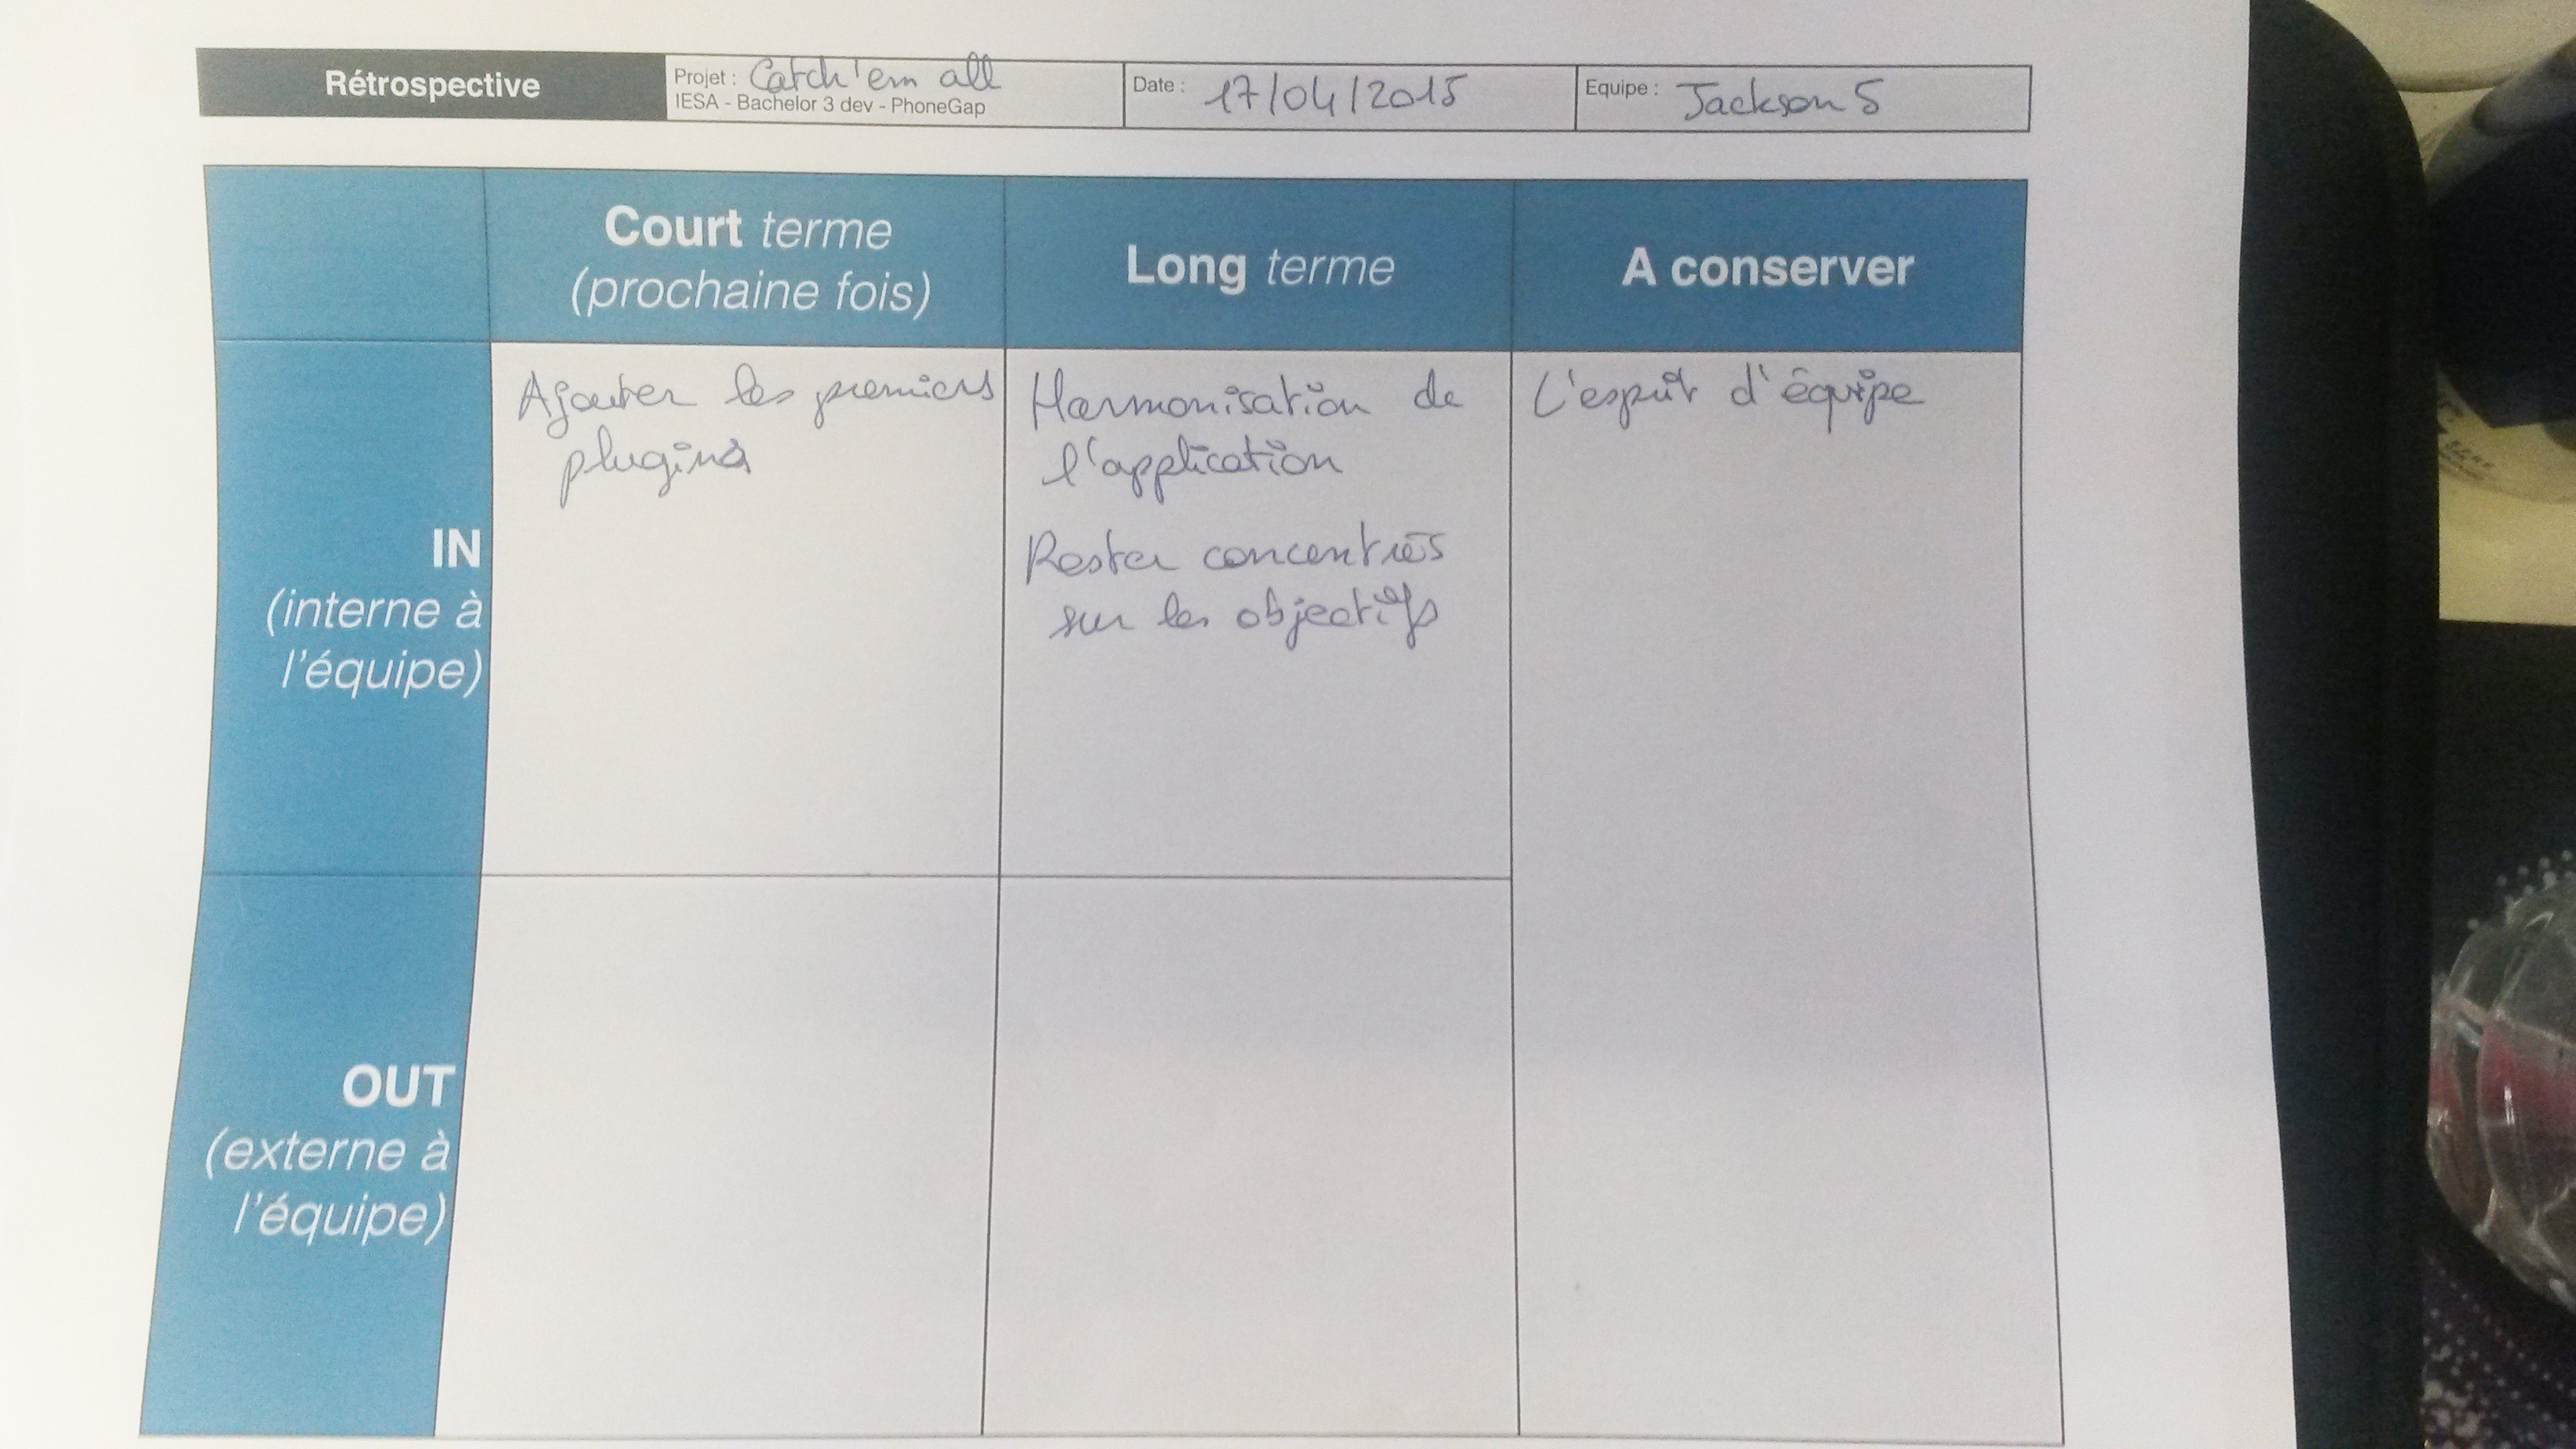 Rétrospective
Projet : Catch'em all
IESA - Bachelor 3 dev - PhoneGap
Date : 17/04/2015
Equipe : Jackson 5
Court terme
(prochaine fois)
Long terme
A conserver
IN
(interne à
l'équipe)
Ajouter les premiers
plugins
Harmonisation de
l'application
Rester concentrés
sur les objectifs
L'esprit d'équipe
OUT
(externe à
l'équipe)